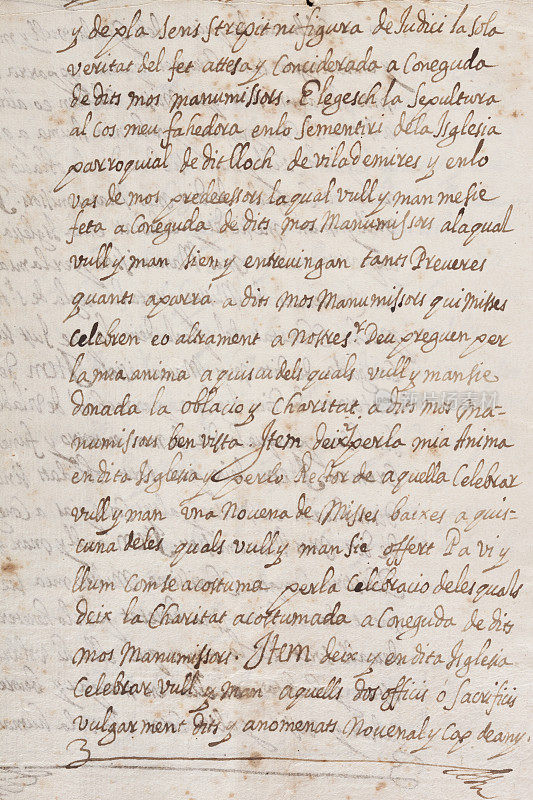 y de pla sens strepit ni figura de Judici la sola
veritat del fet attesa y Conciderada a Coneguda
de dits mos manumissors. Elegesch la Sepultura
al Cos meu fahedora en lo Sementiri de la Isglesia
parroquial de dit lloch de vilademires y en lo
vas de mos predecessors la qual vull y man me sie
feta a Coneguda de dits mos Manumissors a la qual
vull y man sien y entrevingan tants Preveres
quants aparrá a dits Mos Manumissors qui Misses
Celebren eo altrament a Nostre sr. Deu preguen per
la mia anima a quiscu dels quals vull y man sie
donada la oblacio y Charitat a dits mos Ma-
numissors ben vista Item deix per la mia Anima
en dita Isglesia y per lo Rector de aquella Celebrar
vull y man una Novena de Misses baixes a quis-
cuna de les quals vull y man sie offert Pa vi y
llum com se acostuma per la Celebracio de les quals
deix la Charitat acostumada a Coneguda de dits
mos Manumissors. Item deix y en dita Isglesia
Celebrar vull y man aquells dos officis o Sacrificis
vulgarment dits y anomenats Novenal y Cap de any.